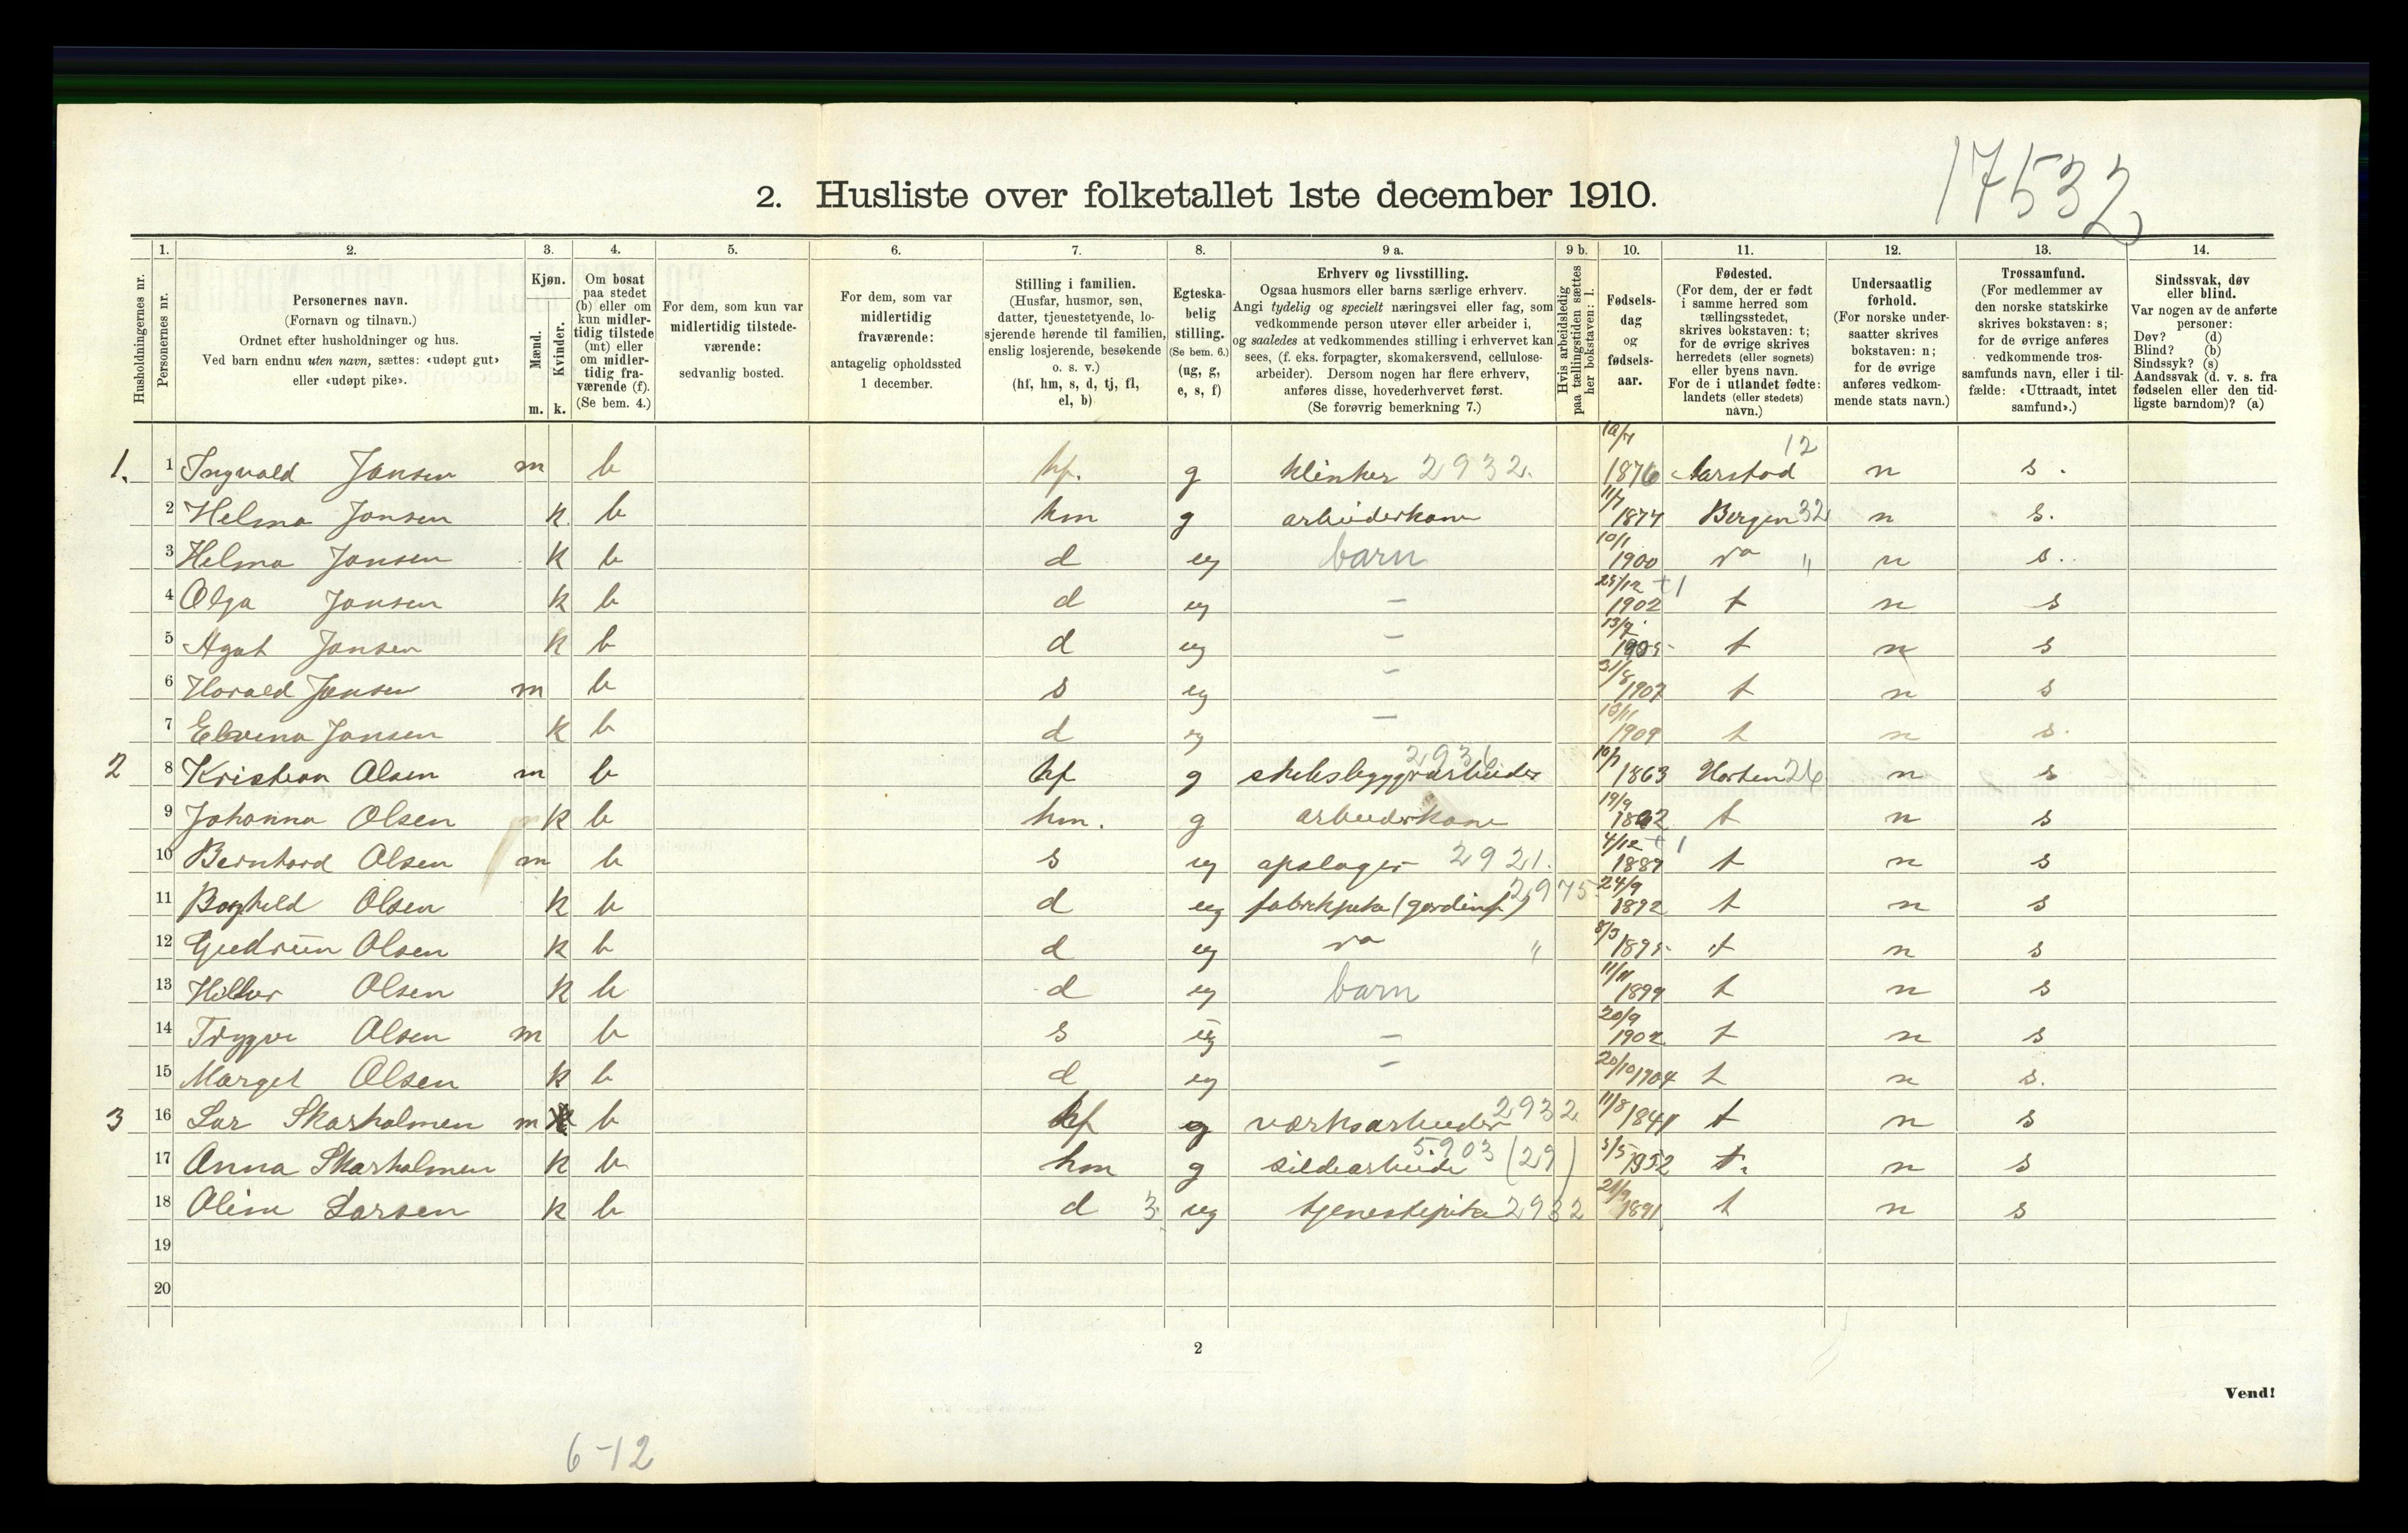 17532
2. Husliste over folketallet 1ste december 1910.
Husholdningernes nr.
1.
Personernes nr.
2.
Personernes navn.
(Fornavn og tilnavn.)
Ordnet efter husholdninger og hus.
Ved barn endnu uten navn, sættes: «udøpt gut»
eller «udøpt pike».
3.
Kjøn.
Mænd.
Kvinder.
m. k.
4.
Om bosat
paa stedet
(b) eller om
kun midler-
tidig tilstede
(mt) eller
om midler-
tidig fra-
værende (f).
(Se bem. 4.)
5.
For dem, som kun var
midlertidig tilstede-
værende:
sedvanlig bosted.
6.
For dem, som var
midlertidig
fraværende:
antagelig opholdssted
1 december.
7.
Stilling i familien.
(Husfar, husmor, søn,
datter, tjenestetyende, lo-
sjerende hørende til familien,
enslig losjerende, besøkende
o. s. v.)
(hf, hm, s, d, tj, fl,
el, b)
8.
Egteska-
belig
stilling.
(Se bem. 6.)
(ug, g,
e, s, f)
9 a.
Erhverv og livsstilling.
Ogsaa husmors eller barns særlige erhverv.
Angi tydelig og specielt næringsvei eller fag, som
vedkommende person utøver eller arbeider i,
og saaledes at vedkommendes stilling i erhvervet kan
sees, (f. eks. forpagter, skomakersvend, cellulose-
arbeider). Dersom nogen har flere erhverv,
anføres disse, hovederhvervet først.
(Se forøvrig bemerkning 7.)
9 b.
Hvis arbeidsledig
paa tællingstiden sættes
her bokstaven: l.
10.
Fødsels-
dag
og
fødsels-
aar.
11.
Fødested.
(For dem, der er født
i samme herred som
tællingsstedet,
skrives bokstaven: t;
for de øvrige skrives
herredets (eller sognets)
eller byens navn.
For de i utlandet fødte:
landets (eller stedets)
navn.)
12.
Undersaatlig
forhold.
(For norske under-
saatter skrives
bokstaven: n;
for de øvrige
anføres vedkom-
mende stats navn.)
13.
Trossamfund.
(For medlemmer av
den norske statskirke
skrives bokstaven: s;
for de øvrige anføres
vedkommende tros-
samfunds navn, eller i til-
fælde: «Uttraadt, intet
samfund».)
14.
Sindssvak, døv
eller blind.
Var nogen av de anførte
personer:
Døv? (d)
Blind? (b)
Sindssyk? (s)
Aandssvak (d. v. s. fra
fødselen eller den tid-
ligste barndom)? (a)
1. 1 Ingvald Jansen m b hf. g klinker 2932. 1876 Aarstad 12 n s.
2 Helma Jansen k b hm g arbeiderkone 11/7 1877 Bergen 32 n s.
3 Helma Jansen k b d ug barn 10/1 1900 " n s.
4 Olga Jansen k b d ug – 25/12 +1 1902 t n s
5 Agat Jansen k b d ug – 1905 t n s
6 Harald Jansen m b s ug – 31/8 1907 t n s
7 Elvena Jansen k b d ug – 1909 t n s.
2 8 Kristian Olsen m b hf g 1863 Horten 26 n s
9 Johanna Olsen k b hm. g arbeiderkone 19/9 t n s
10 Bernhard Olsen m b s ug opslager 2921. 4/12 +1 t n s
11 Boghild Olsen k b d ug 2975 24/9 1892 t n s
12 Gudrun Olsen k b d ug " 8/3 1895 t n s
13 Olsen k b d ug barn 11/11 1899 t n s
14 Trygve Olsen m b s ug – 20/9 1902 t n s
15 Marget Olsen k b d ug – 20/10 1904 t n s.
3 16 Lar Skarholmen m b hf g værksarbeider 2932 11/8 1841 t n s
17 Anna Skarholmen k b hm g sildearbeide 5.903 (29) t. n s
18 Oline Larsen k b d 3 ug tjenestepike 2932 21/9 1891 t n s
19
20
2
Vend!
6-12